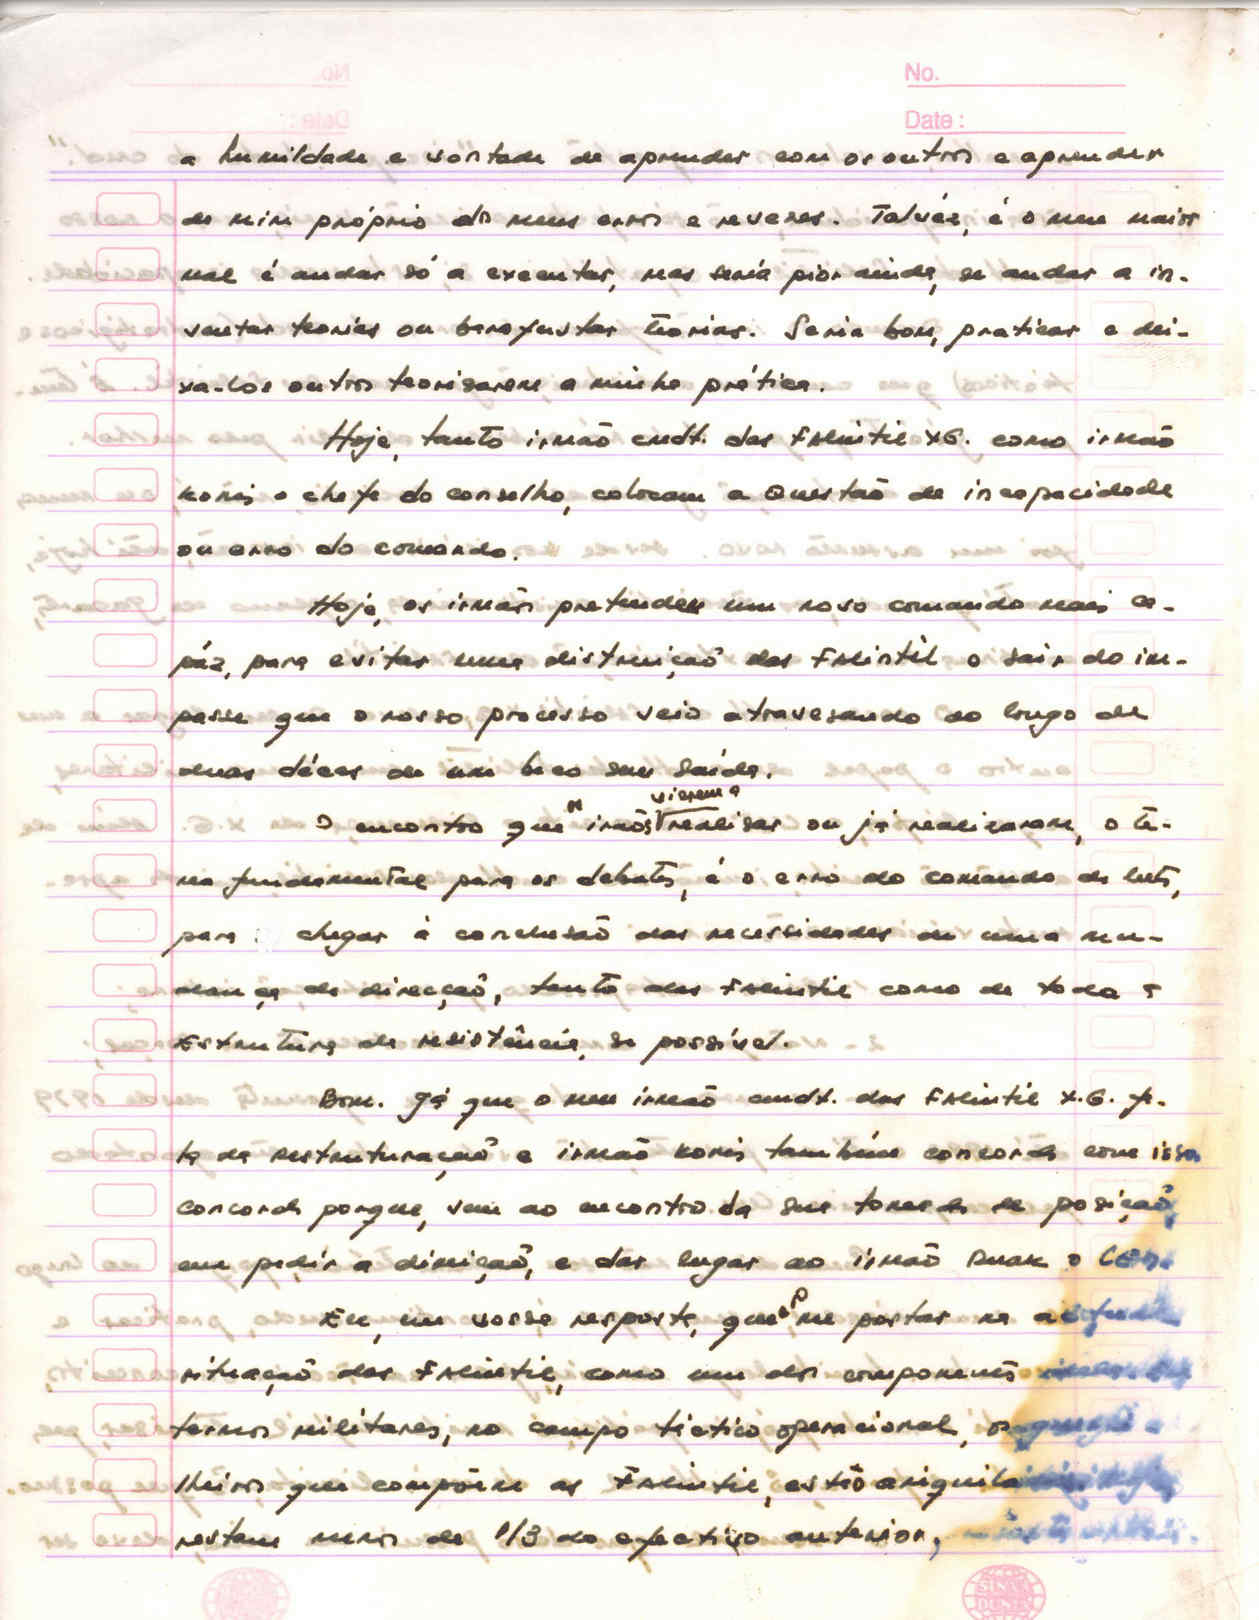 No.
Date :
a humildade e vontade de aprender com os outros e aprender
de mim próprio dos meus erros e reveses. Talvéz, é o meu maior
mal é andar só a executar, mas seria pior ainda, se andar a in-
ventar teorias ou teorias. Seria bom, praticar e dei-
xa-los outros teorisarem a minha prática.
Hoje, tanto irmão cmdt. das Falintil XG. como irmão
Konis o chefe do conselho, colocam a Questão de incapacidade
ou erro do comando.
Hoje, os irmãos pretendem um novo comando mais ca-
páz, para evitar uma distruição das Falintil o sair do im-
passe que o nosso processo veio atravesando ao longo de
duas décas de um beco sem saída.
O encontro que irmãos vierem a realisar ou já realizaram, o te-
ma fundamental para os debates, é o erro do comando da luta,
para chegar à conclusão das necessidades de uma mu-
dança de direcção, tanto das Falintil como de toda a
Estrutura da resistência, se possível.
Bom. Já que o meu irmão cmdt. das Falintil X.G. fa-
la da restruturação e irmão Konis também concorda com isso,
concorda porque, vem ao encontro da sua tomada de posição
em pedir a dimição, e dar lugar ao irmão Ruak o
Eu, em vossa resposta, que me portar na
situação das Falintil, como um dos componentes
termos militares, no campo tictico operacional, os
lheiros que compõem as Falintil, estão
restam menos de 1/3 do efectivo anterior,
SINAR
DUNIA